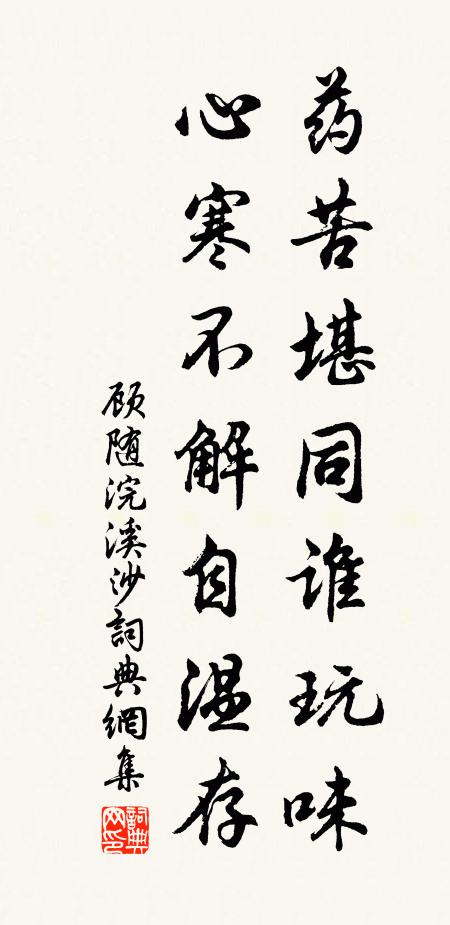 药苦堪同谁玩味
心寒不解自温存
顾随浣溪沙词典網集
詞典网印